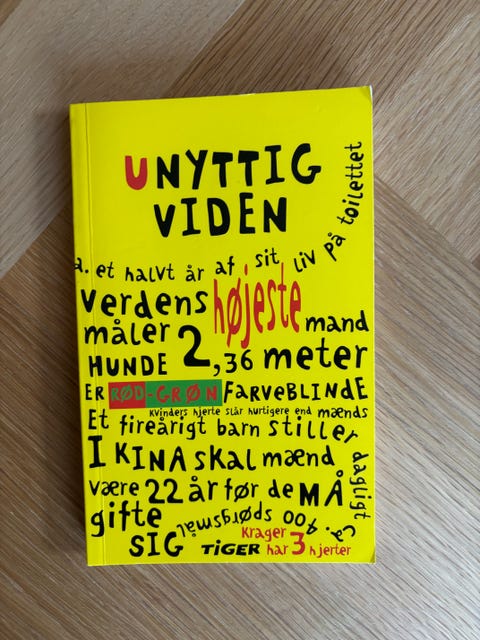 UNYTTIG
VIDEN
a. et halvt år af sit liv på toilettet
verdens højeste mand
måler 2,36 meter
HUNDE
ER RØD-GRØN FARVEBLINDE
Kvinders hjerte slår hurtigere end mænds
Et fireårigt barn stiller dagligt
ca. 400 spørgsmål
I KINA skal mænd
være 22 år før de MÅ
gifte
SIG
TIGER
Krager
har 3 hjerter